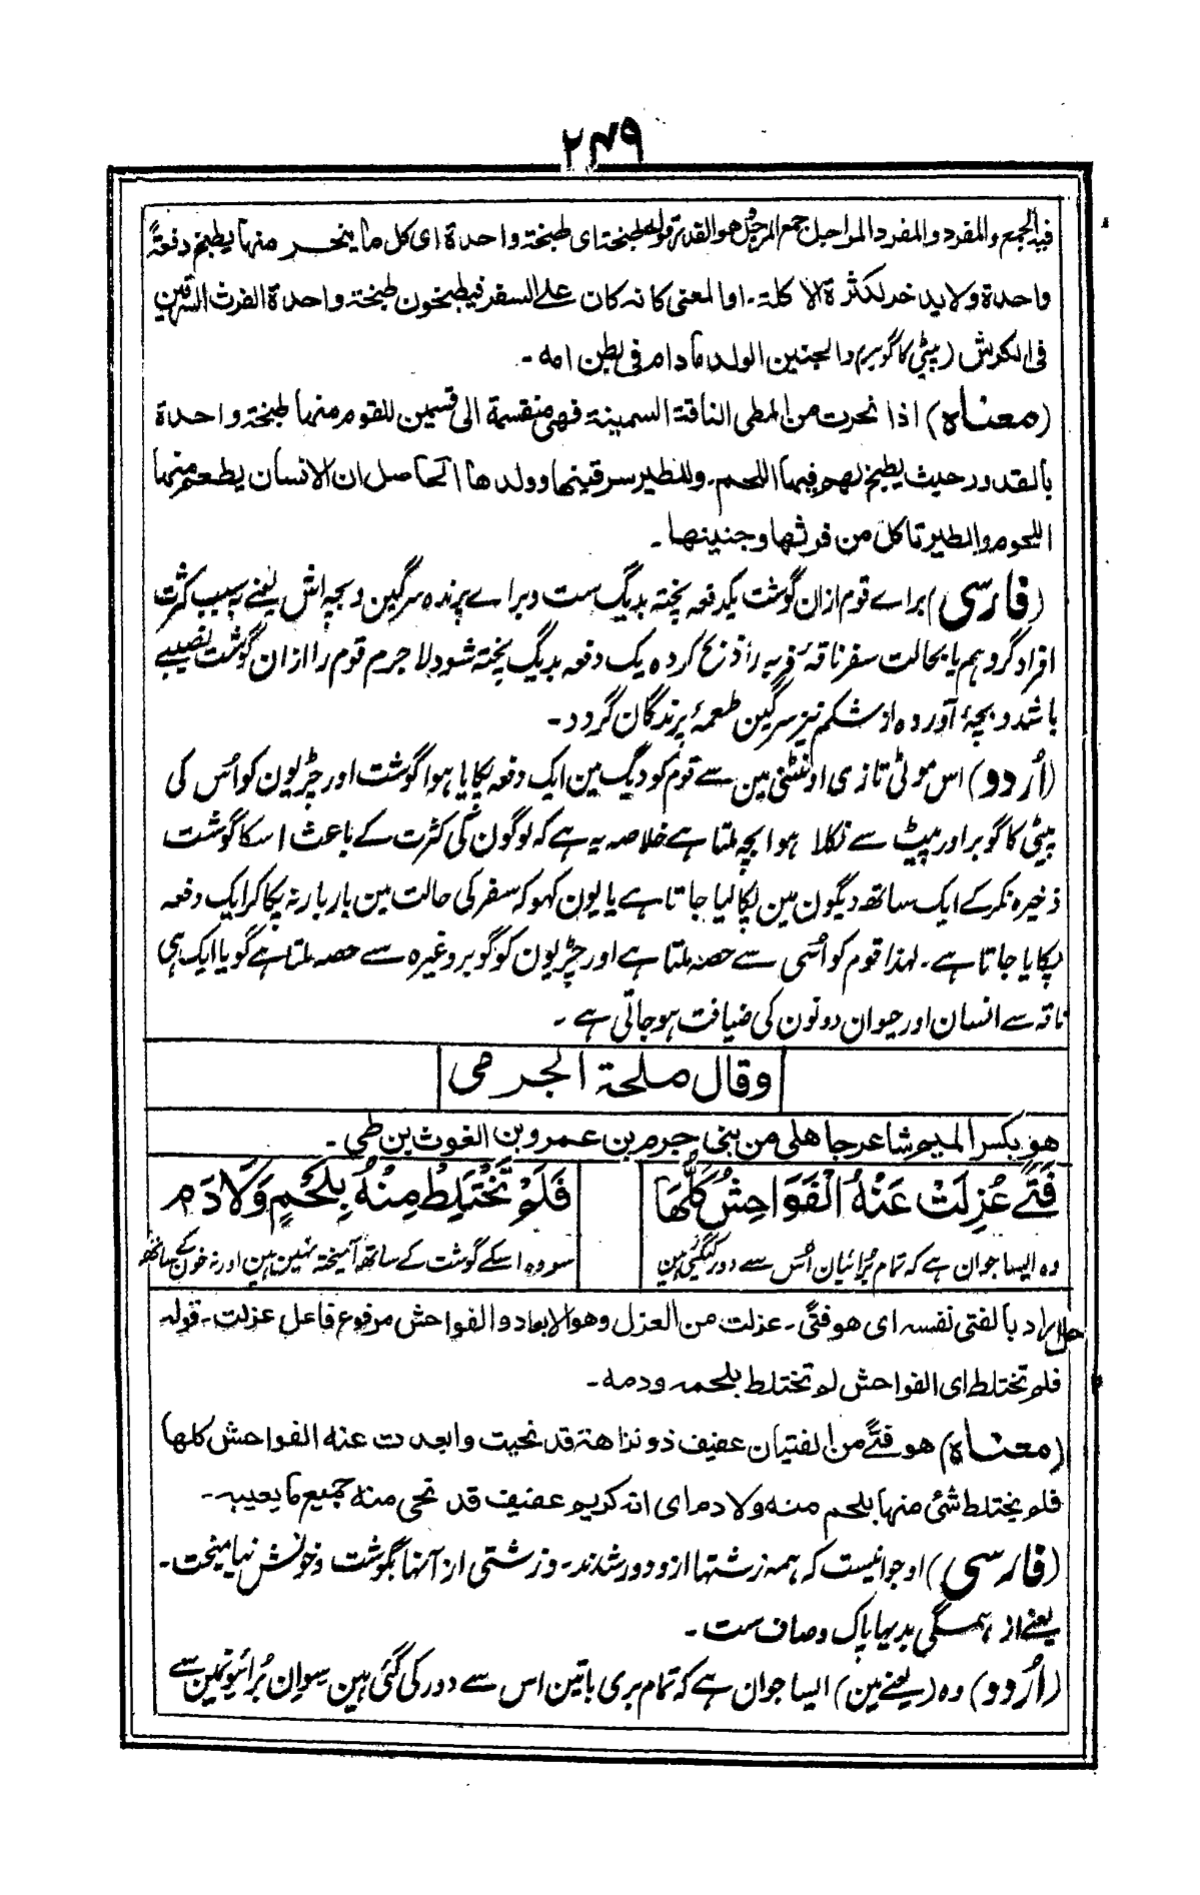 ۲۴۹
فيه الجمع والمفرد والمفرد المراجل جمع المرجل هو القدر قوله طبخة اى طبخة واحدة اى كل ما ينحر منها يطبخ دفعةً
واحدة ولا يدخر لكثرة الاكلة۔ او المعنى كانه كان على السفر فيطبخون طبخة واحدة الفرث السرقين
فى الكرش (پیٹی کا گوبر) والجنين الولد ما دام فى بطن امه ۔
(معناه) اذا نحرت من المطى الناقة السمينة فهى منقسمة الى قسمين للقوم منها طبخة واحدة
بالقدور حيث يطبخ لهم فيها اللحم۔ وللطير سرقينها وولدها الحاصل ان الانسان يطعم منها
اللحوم والطير تاكل من فرثها وجنينها ۔
(فارسی) براے قوم ازان گوشت یکدفعہ پختہ بدیگ ست وبراے پرندہ سرگین وبچہ اش یعنے بسبب کثرت
افراد گروہم یا بحالت سفر ناقۂ فربہ را ذبح کردہ یک دفعہ بدیگ پختہ شود لا جرم قوم را ازان گوشت نصیبے
باشد و بچۂ آوردہ از شکم نیز سرگین طعمۂ پرندگان گردد ۔
(اُردو) اس موٹی تازی اونٹنی مین سے قوم کو دیگ مین ایک دفعہ پکایا ہوا گوشت اور چڑیون کو اُس کی
پیٹی کا گوبر اور پیٹ سے نکلا ہوا بچہ ملتا ہے خلاصہ یہ ہے کہ لوگون کی کثرت کے باعث اسکا گوشت
ذخیرہ نکر کے ایک ساتھ دیگون مین پکالیا جاتا ہے یا یون کہو کہ سفر کی حالت مین بار بار نہ پکا کر ایک دفعہ
پکایا جاتا ہے۔ لہذا قوم کو اُسی سے حصہ ملتا ہے اور چڑیون کو گوبر وغیرہ سے حصہ ملتا ہے گویا ایک ہی
ناقہ سے انسان اور حیوان دونون کی ضیافت ہو جاتی ہے ۔
وقال ملحة الجرمى
هو بكسر الميم شاعر جاهلى من بنى جرم بن عمرو بن الغوث بن طى ۔
فَتًى عُزِلَتْ عَنْهُ الْفَوَاحِشُ كُلُّهَا فَلَمْ تَخْتَلِطْ مِنْهُ بِلَحْمٍ وَلَا دَم
وہ ایسا جوان ہے کہ تمام بُرائیان اُس سے دور کیگئی ہین سو وہ اسکے گوشت کے ساتھ آمیختہ نہین ہین اور نہ خون کے ساتھ
حل اراد بالفتى نفسه اى هو فتًى۔ عزلت من العزل وهو الابعاد والفواحش مرفوع فاعل عزلت۔ قوله
فلم تختلط اى الفواحش لم تختلط بلحمه ودمه ۔
(معناه) هو فتًى من الفتيان عفيف ذو نزاهة قد نحيت وابعدت عنه الفواحش كلها
فلم يختلط شئ منها بلحم منه ولا دم اى انه كريم عفيف قد نحى منه جميع ما يعيبه ۔
(فارسی) او جوانیست کہ ہمہ زشتہا از و دور شدند۔ وزشتی از آنہا بگوشت وخونش نیامیخت۔
یعنے از ہمگی بدیہا پاک وصاف ست ۔
(اُردو) وہ (یعنے مین) ایسا جوان ہے کہ تمام بری باتین اس سے دور کی گئی ہین سو ان بُرائیونمین سے